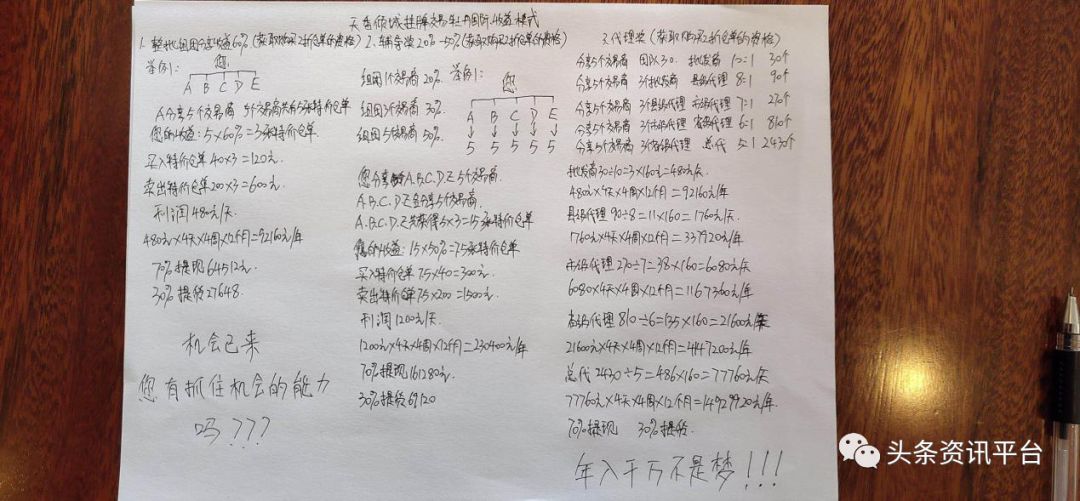 天香倾城挂牌交易华中国际收益模式
1.整批组团分进收益60%(获取购买2折仓单的资格)
举例1:
您
A B C D E
A分享5个交易商 5个交易商共有5张特价仓单
您的收益:5×60%=3张特价仓单
买入特价仓单40×3=120元
卖出特价仓单200×3=600元
利润480元/天
480元×4天×4周×12个月=92160元/年
70%提现64512元
30%提货27648
机会已来
您有抓住机会的能力
吗???
2、辅导奖20%-50%(获取购买2折仓单的资格)
组团1个交易商20%
举例1:
您
组团3个交易商30%
A B C D E
组团5个交易商50%
5 5 5 5 5
您分享A.B.C.D.E5个交易商
A.B.C.D.E各分享5个交易商
A.B.C.D.E共获得5×3=15张特价仓单
您的收益:15×50%=7.5张特价仓单
买入特价仓单7.5×40=300元
卖出特价仓单7.5×200=1500元
利润1200元/天
1200元×4天×4周×12个月=230400元/年
70%提现161280元
30%提货69120
3.代理奖(获取购买2折仓单的资格)
分享5个交易商 团队30 批发商 10=1 30个
分享5个交易商 3个批发商 县级代理 8=1 90个
分享5个交易商 3个县级代理 市级代理 7=1 270个
分享5个交易商 3个市级代理 省级代理 6=1 810个
分享5个交易商 3个省级代理 总代 5=1 2430个
批发商30÷10=3×160元=480元
480元×4天×4周×12个月=92160元/年
县级代理 90÷8=11×160=1760元/天
1760元×4天×4周×12个月=337920元/年
市级代理270÷7=38×160=6080元/天
6080×4天×4周×12个月=1167360元/年
省级代理810÷6=135×160=21600元/天
21600元×4天×4周×12个月=4147200元/年
总代2430÷5=486×160=77760元/天
77760元×4天×4周×12个月=14929920元/年
70%提现 30%提货
年入千万不是梦!!!
头条资讯平台